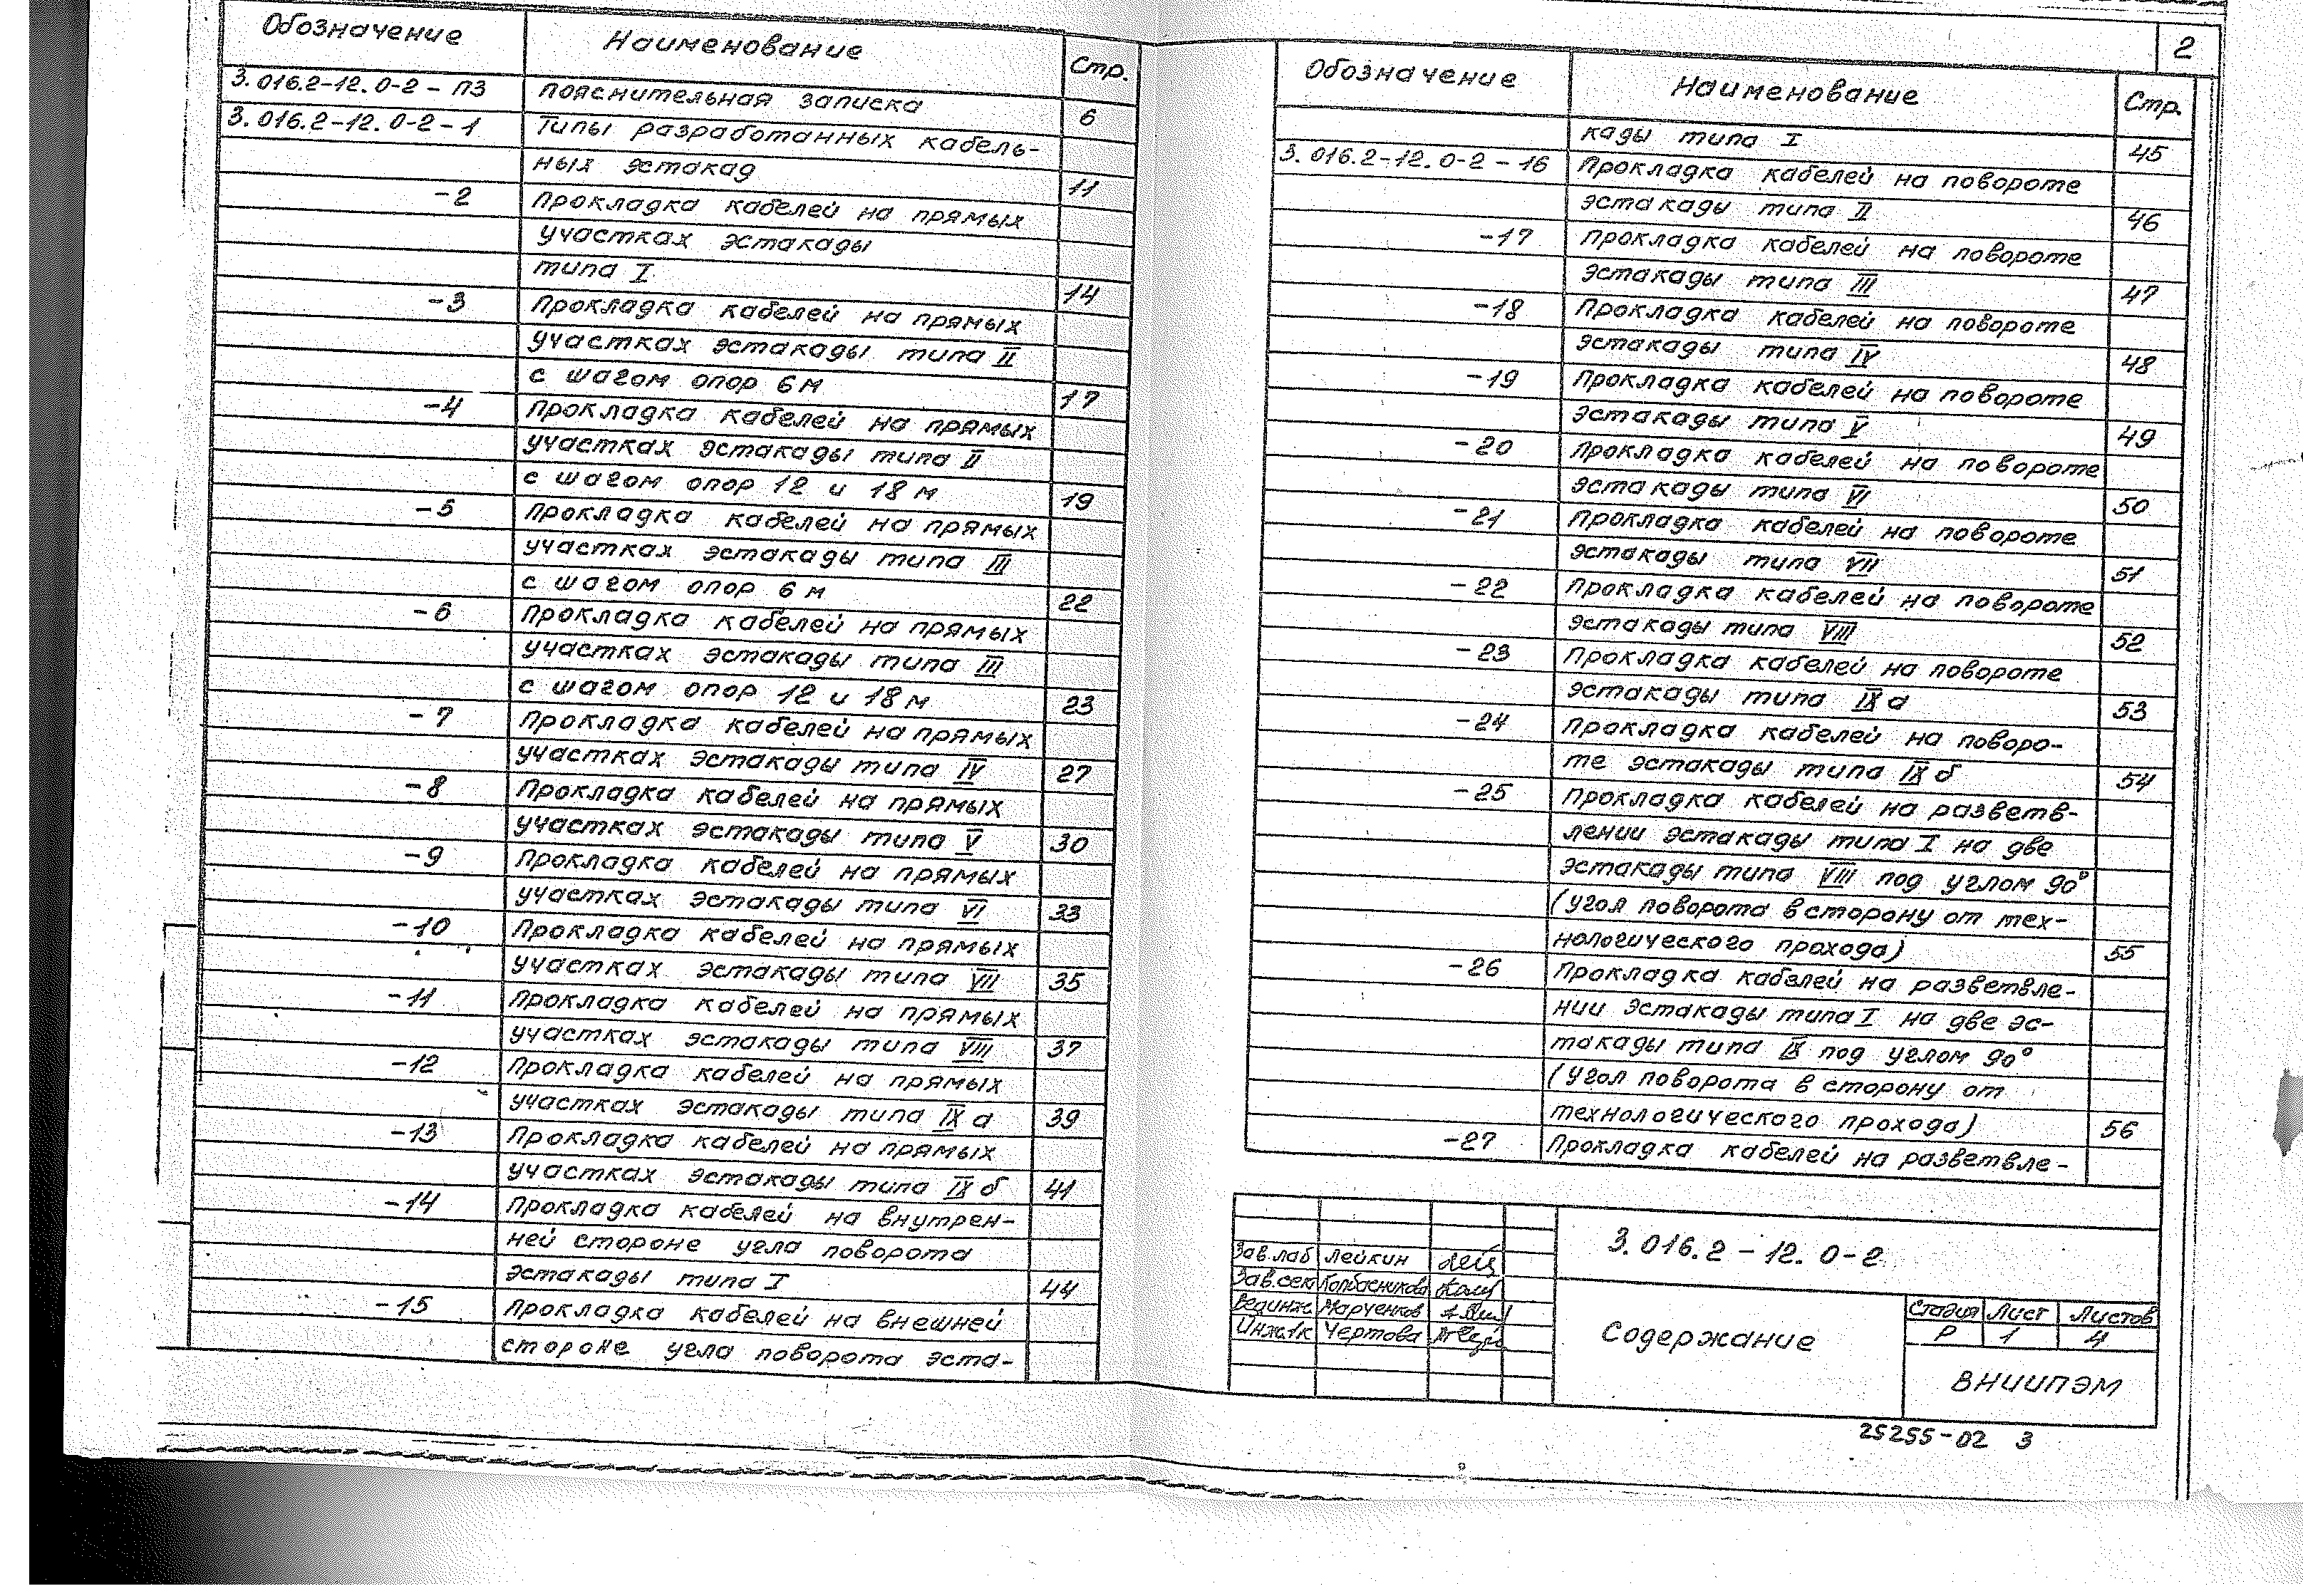 Обозначение Наименование Стр.
3.016.2-12.0-2-ПЗ Пояснительная записка 6
3.016.2-12.0-2-1 Типы разработанных кабель-
ных эстакад 11
-2 Прокладка кабелей на прямых
участках эстакады
типа I 14
-3 Прокладка кабелей на прямых
участках эстакады типа II
с шагом опор 6 м 17
-4 Прокладка кабелей на прямых
участках эстакады типа II
с шагом опор 12 и 18 м 19
-5 Прокладка кабелей на прямых
участках эстакады типа III
с шагом опор 6 м 22
-6 Прокладка кабелей на прямых
участках эстакады типа III
с шагом опор 12 и 18 м 23
-7 Прокладка кабелей на прямых
участках эстакады типа IV 27
-8 Прокладка кабелей на прямых
участках эстакады типа V 30
-9 Прокладка кабелей на прямых
участках эстакады типа VI 33
-10 Прокладка кабелей на прямых
участках эстакады типа VII 35
-11 Прокладка кабелей на прямых
участках эстакады типа VIII 37
-12 Прокладка кабелей на прямых
участках эстакады типа IX а 39
-13 Прокладка кабелей на прямых
участках эстакады типа IX б 41
-14 Прокладка кабелей на внутрен-
ней стороне угла поворота
эстакады типа I 44
-15 Прокладка кабелей на внешней
стороне угла поворота эста-
2
Обозначение Наименование Стр.
кады типа I 45
3.016.2-12.0-2-16 Прокладка кабелей на повороте
эстакады типа II 46
-17 Прокладка кабелей на повороте
эстакады типа III 47
-18 Прокладка кабелей на повороте
эстакады типа IV 48
-19 Прокладка кабелей на повороте
эстакады типа V 49
-20 Прокладка кабелей на повороте
эстакады типа VI 50
-21 Прокладка кабелей на повороте
эстакады типа VII 51
-22 Прокладка кабелей на повороте
эстакады типа VIII 52
-23 Прокладка кабелей на повороте
эстакады типа IX а 53
-24 Прокладка кабелей на поворо-
те эстакады типа IX б 54
-25 Прокладка кабелей на разветв-
лении эстакады типа I на две
эстакады типа VIII под углом 90°
(угол поворота в сторону от тех-
нологического прохода) 55
-26 Прокладка кабелей на разветвле-
нии эстакады типа I на две эс-
такады типа IX под углом 90°
(угол поворота в сторону от
технологического прохода) 56
-27 Прокладка кабелей на разветвле-
3.016.2-12.0-2
Зав.лаб Лейкин
Зав.сек Колбасникова
Вед.инж Марченков
Инж.1к Чертова
Содержание
Стадия Лист Листов
Р 1 4
ВНИИПЭМ
25255-02 3